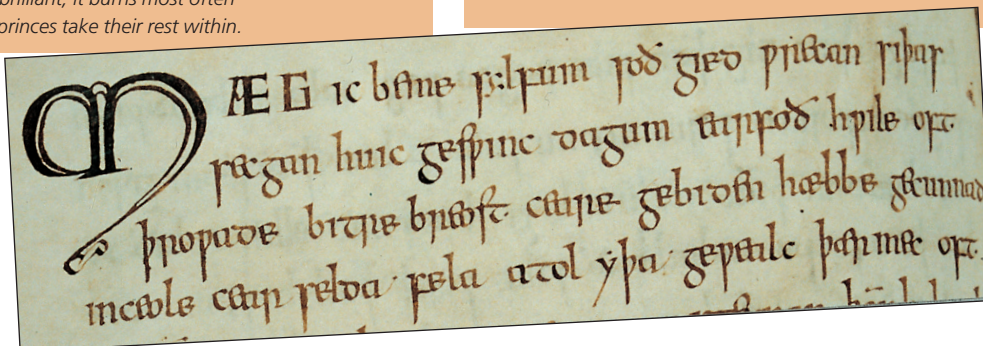 brilliant, it burns most often
princes take their rest within.
MÆG ic beme sylfum soð gied ƿrecan siþas
secgan huic gesƿinc dagum earfoð hƿile oft
þroƿade bitre breost ceare gebiden hæbbe gecunnad
inceole cear selda fela atol yþa geƿealc þær mec oft